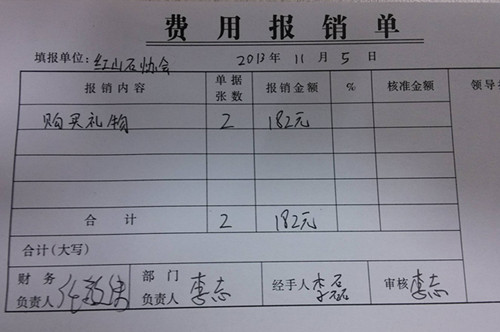 费用报销单
填报单位：红山石协会 2013年11月5日
报销内容 单据张数 报销金额 % 核准金额 领导
购买礼物 2 182元
合计 2 182元
合计（大写）
财务负责人 部门负责人 李志 经手人 李磊 审核 李志